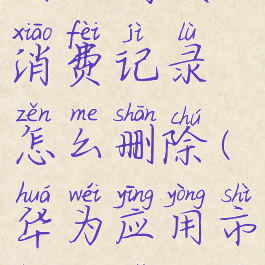 xiāo fèi jì lù
消费记录
zěn me shān chú
怎么删除(
huá wéi yīng yòng shì
华为应用市